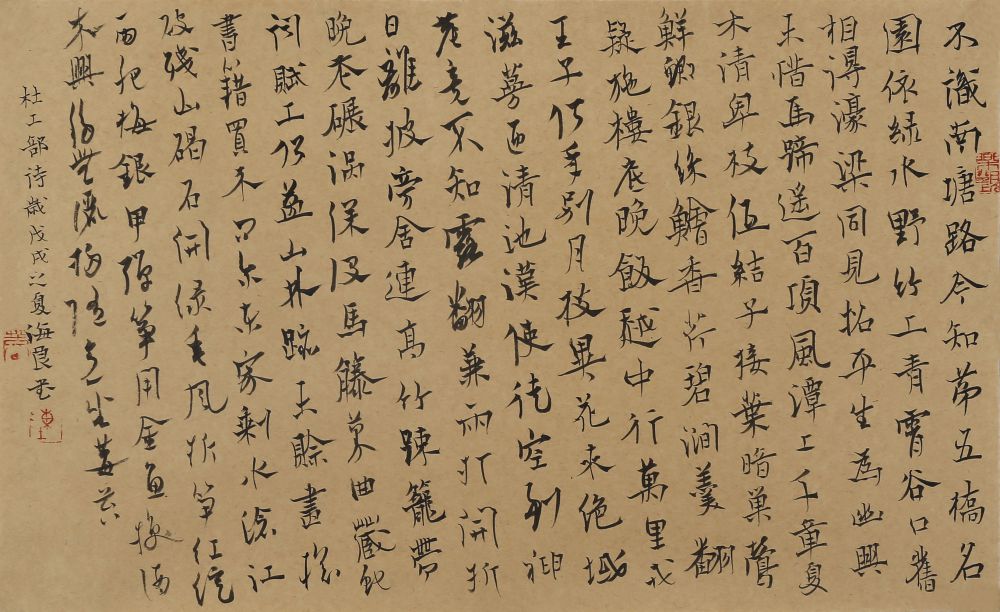 不識南塘路今知第五橋名
園依綠水野竹上青霄谷口舊
相得濠梁同見招平生為幽興
未惜馬蹄遙百頃風潭上千章夏
木清卑枝低結子接葉暗巢鶯
鮮鯽銀絲鱠香芹碧澗羹翻
疑柂樓底晚飯越中行萬里戎
王子何年別月枝異花來絕域
滋蔓匝清池漢使徒空到神
農竟不知露翻兼雨打開折
日離披旁舍連高竹踈籬帶
晚花碾渦深沒馬藤蔓曲藏蛇
詞賦工何益山林跡未賒盡捻
書籍買来問尔東家剩水滄江
破殘山碣石開緑垂風折笋紅綻
雨肥梅銀甲彈箏用金魚換酒
來興移無灑掃隨意坐莓苔
杜工部詩歲戊戌之夏海良書